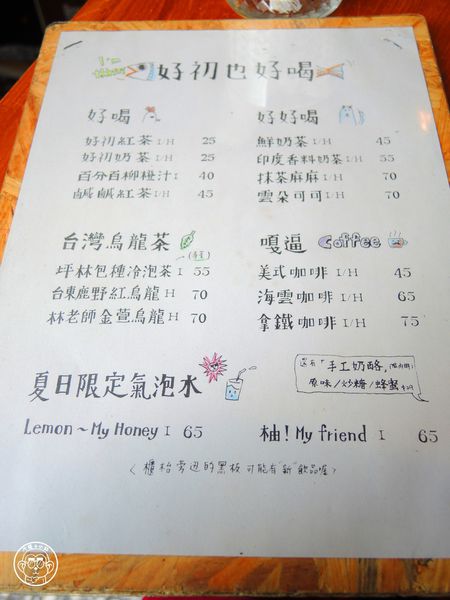 I'm thirsty
好初也好喝
好喝
好初紅茶 I/H 25
好初奶茶 I/H 25
百分百柳橙汁 I 40
鹹鹹紅茶 I/H 45
好好喝
鮮奶茶 I/H 45
印度香料奶茶 I/H 55
抹茶麻麻 I/H 70
雲朵可可 I/H 70
台灣烏龍茶
(春茶)
坪林包種冷泡茶 I 55
台東鹿野紅烏龍 H 70
林老師金萱烏龍 H 70
嘎逼 Coffee
美式咖啡 I/H 45
海雲咖啡 I/H 65
拿鐵咖啡 I/H 75
夏日限定氣泡水
還有「手工奶酪」
原味/炒糖/蜂蜜
Lemon～My Honey I 65
柚! My friend I 65
〈櫃枱旁邊的黑板可能有"新"飲品喔〉